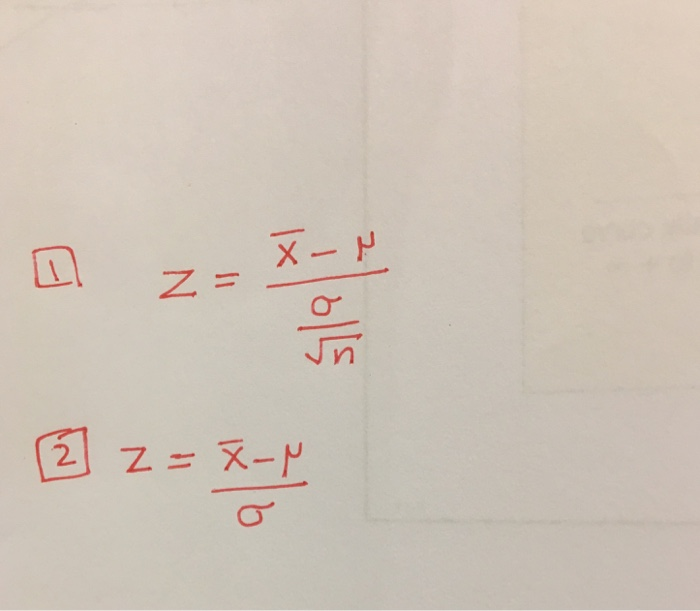 1 z = (x̄ − μ) / (σ / √n)
2 z = (x̄ − μ) / σ